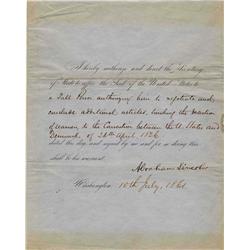 I hereby authorize and direct the Secretary
of State to affix the Seal of the United States to
a Full Power authorizing him to negotiate and
conclude additional articles, touching the
of to the Convention between the U. States and
Denmark, of 26th April, 1826,
dated this day, and signed by me and for so doing this
shall be his warrant.
Abraham Lincoln
Washington, 10th July, 1861.